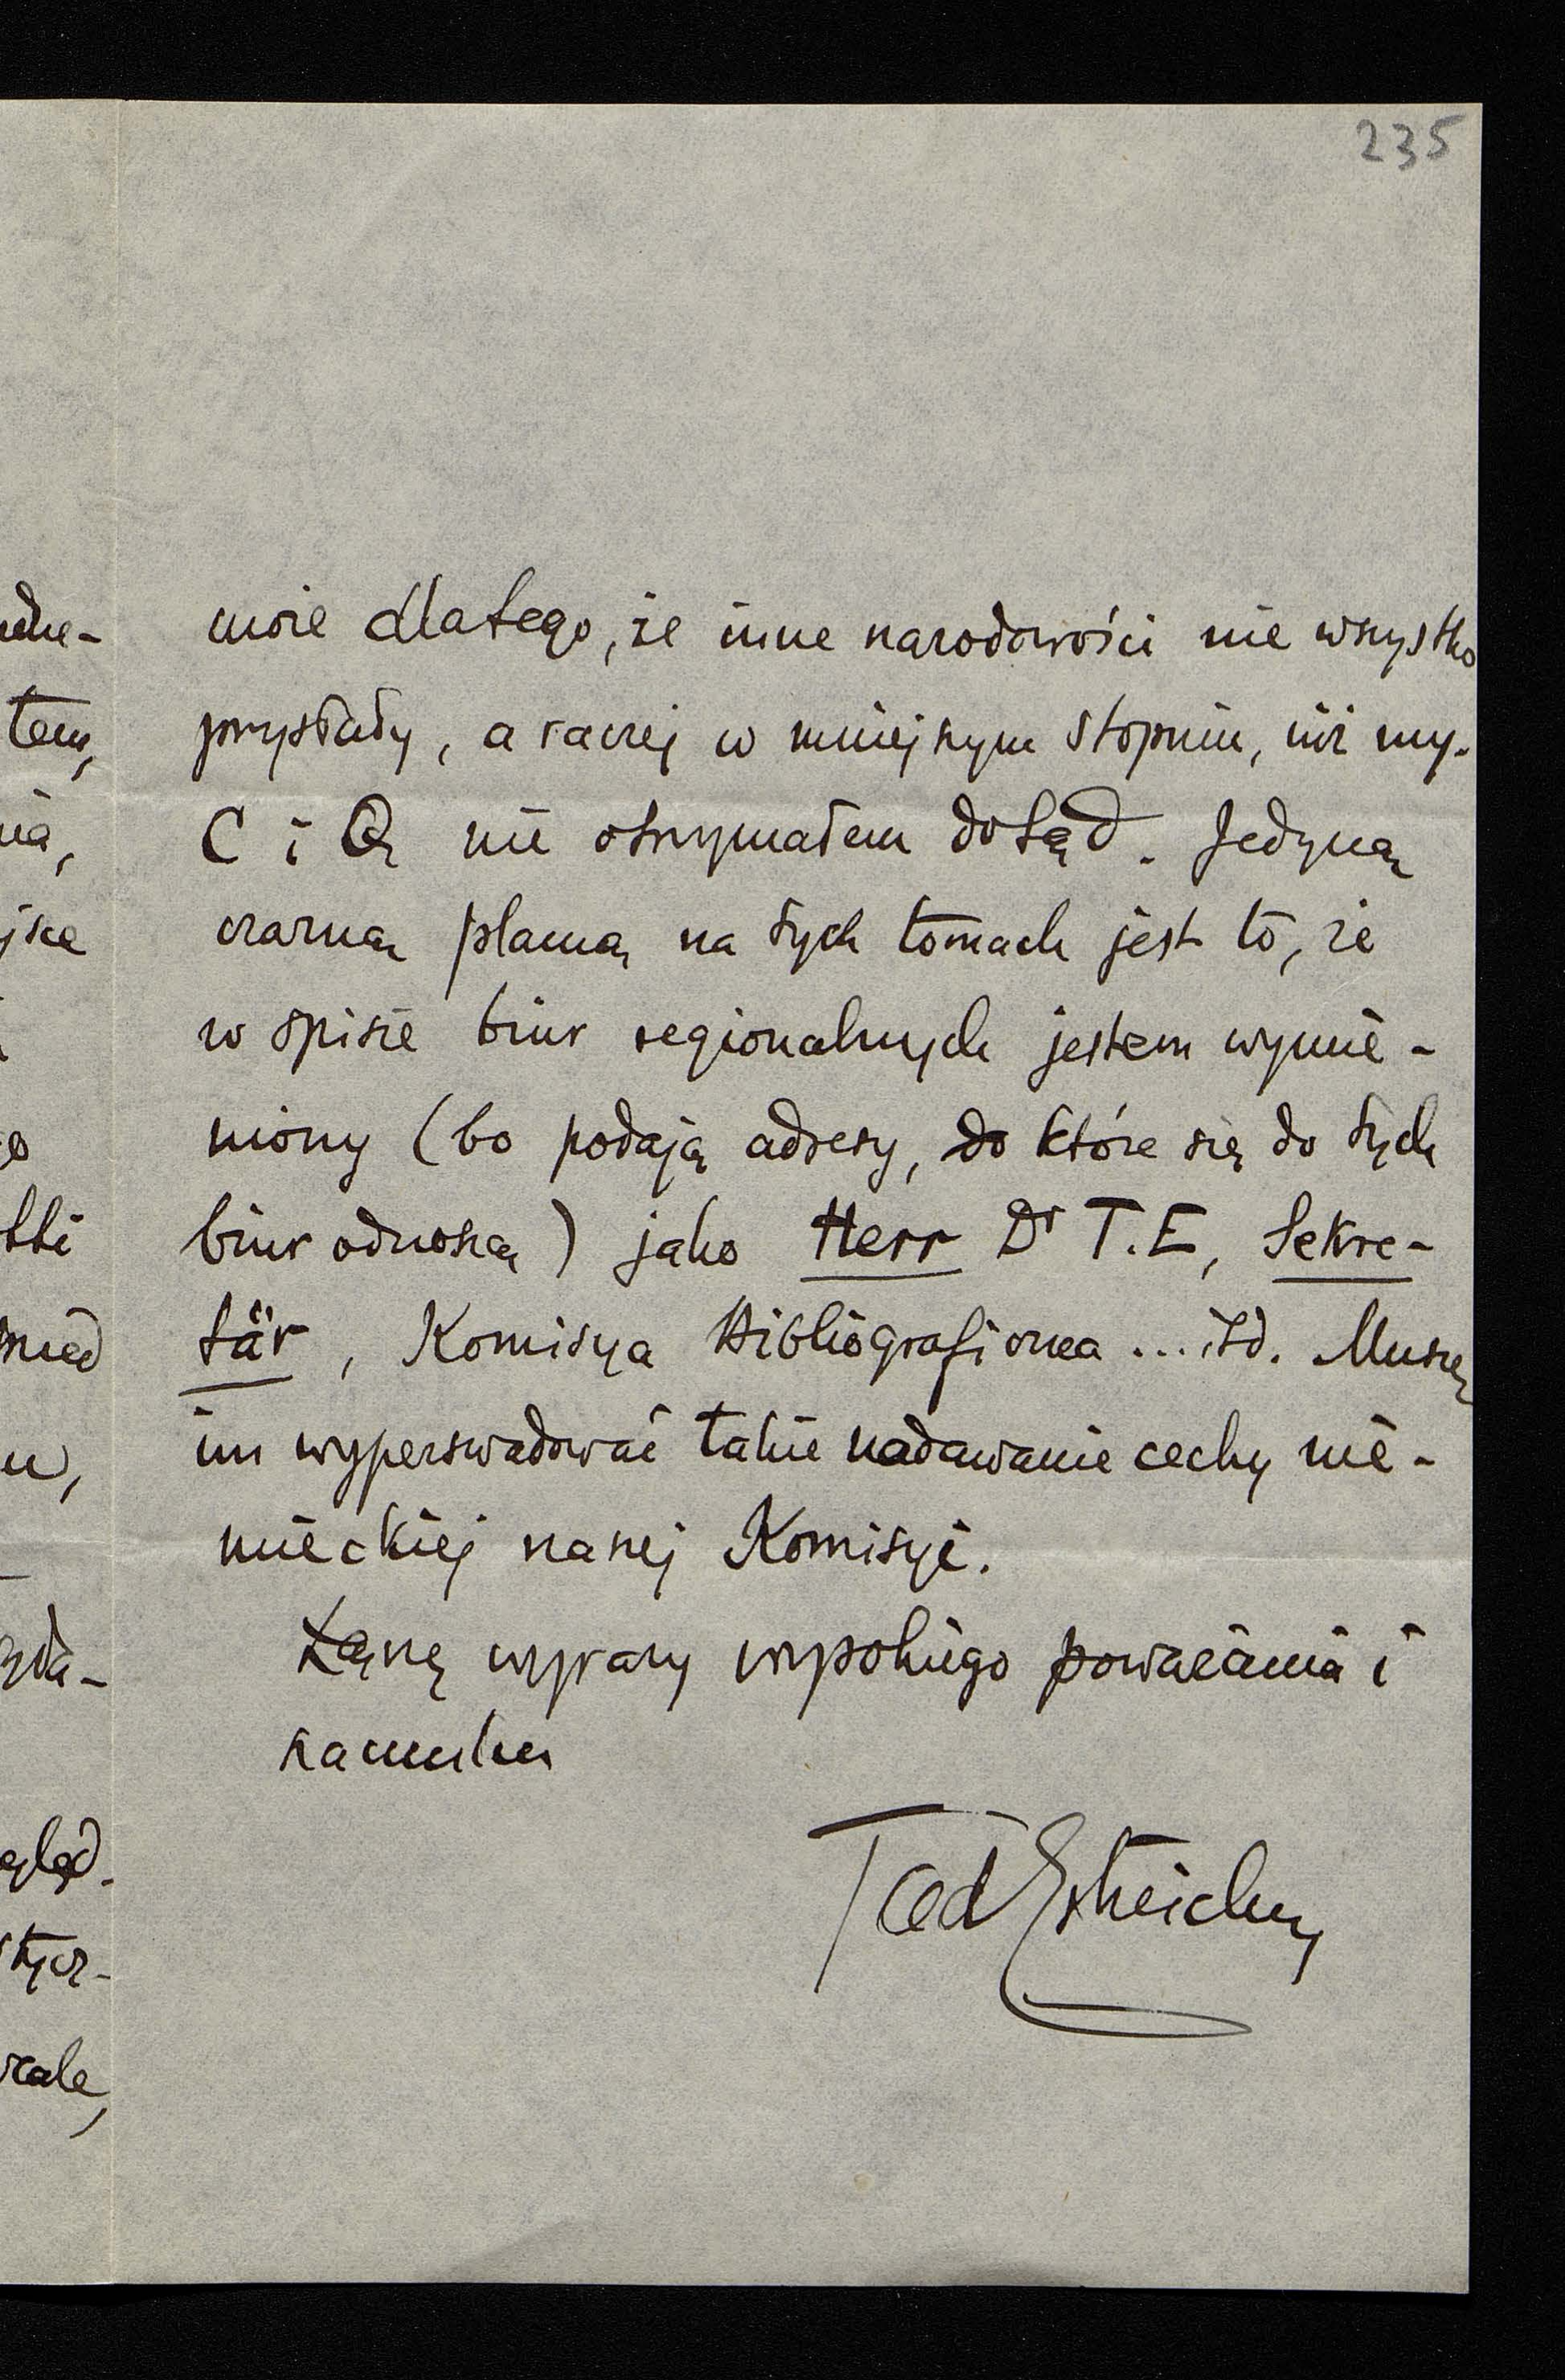 235
może dlatego, że inne narodowości nie wszystko
przysłały, a raczej w mniejszym stopniu, niż my.
C i Q nie otrzymałem dotąd. Jedyną
czarną plamą na tych tomach jest to, że
w spisie biur regionalnych jestem wymie-
niony (bo podają adresy, do które się do tych
biur odnoszą) jako Herr Dr T.E, Sekre-
tär, Komisya Bibliograficzna ... itd. Muszę
im wyperswadować takie nadawanie cechy nie-
mieckiej naszej Komisyi.
Łączę wyrazy wysokiego poważania i
szacunku
Tad Estreicher